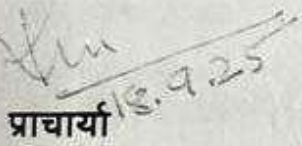 18.9.25
प्राचार्या